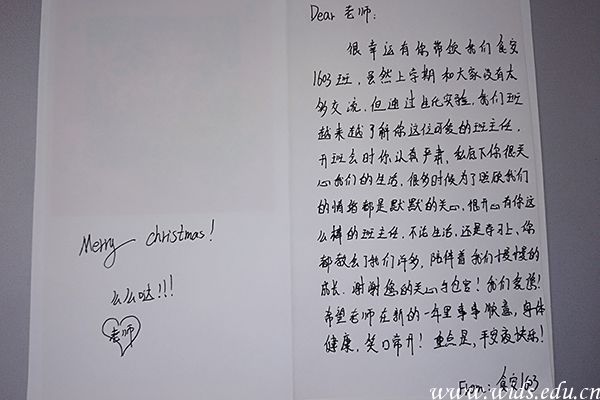 Merry christmas!
么么哒!!!
老师
Dear 老师:
很幸运有你带领我们食安
1603班,虽然上学期和大家没有太
多交流,但通过生化实验,我们班
越来越了解你这位可爱的班主任,
开班会时你认真严肃,私底下你很关
心我们的生活,很多时候为了照顾我们
的情绪都是默默的关心,很开心有你这
么棒的班主任,不论生活,还是学习上,你
都教会了我们许多,陪伴着我们慢慢的
成长.谢谢您的关心与包容!我们爱您!
希望老师在新的一年里事事顺意,身体
健康,笑口常开!重点是,平安夜快乐!
From:食安1603
www.wids.edu.cn